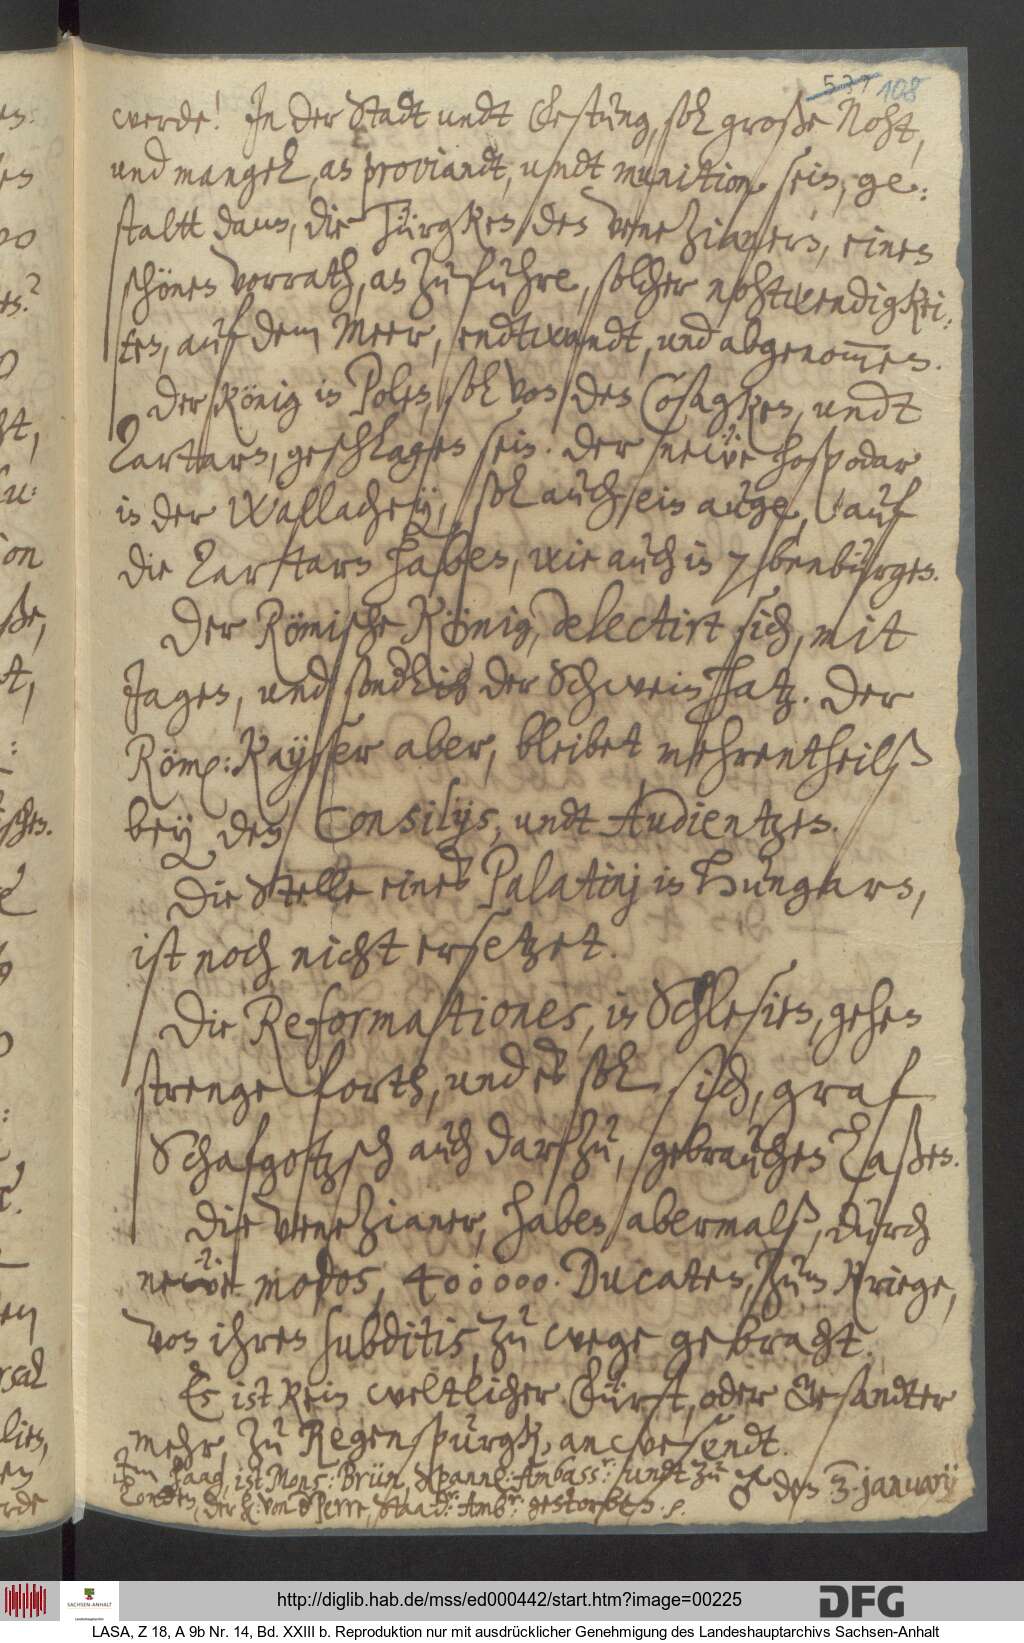 537 108
werde! In der Stadt undt Vestung, sol große Noht,
und mangel, an proviandt, undt munition sein, ge:
staltt dann, die Türgken den Venezianern, einen
schönen vorrath, an zufuhre, solcher nohtwendigkei:
ten, auf dem Meer, endtwandt, und abgenom̅en.
Der König in Polen, sol von den Cosagken, undt
Tartarn, geschlagen sein. Der neẅe hospodar
in der Wallacheÿ, sol auch sein auge, auf
die Tartarn haben, wie auch in 7benbürgen.
Der Römische König, delectirt sich, mit
Jagen, und sondlich der Schweinhatz. Der
Röm: Kayser aber, bleibet mehrentheilß
beÿ den Consilijs, undt Audientzen.
Die Stelle eines Palatinj in Hungarn,
ist noch nicht ersetzet.
Die Reformationes, in Schlesien, gehen
strenge forth, und es sol sich, graf
Schafgotzsch auch darzu, gebrauchen laßen.
Die Venezianer, haben abermalß, durch
neẅe modos, 400000. Ducaten, zum kriege,
von ihren subditis, zu wege gebracht.
Es ist kein weltlicher Fürst, oder Gesandter
mehr, zu Regenspurgk, anwesendt.
Im Haag, ist Mons: Brün, Spann: Ambassr: undt zu
Londen, der h: von d Perre, Staad: Ambr: gestorben. p.
♂ den 3. january
http://diglib.hab.de/mss/ed000442/start.htm?image=00225
SACHSEN-ANHALT
DFG
LASA, Z 18, A 9b Nr. 14, Bd. XXIII b. Reproduktion nur mit ausdrücklicher Genehmigung des Landeshauptarchivs Sachsen-Anhalt